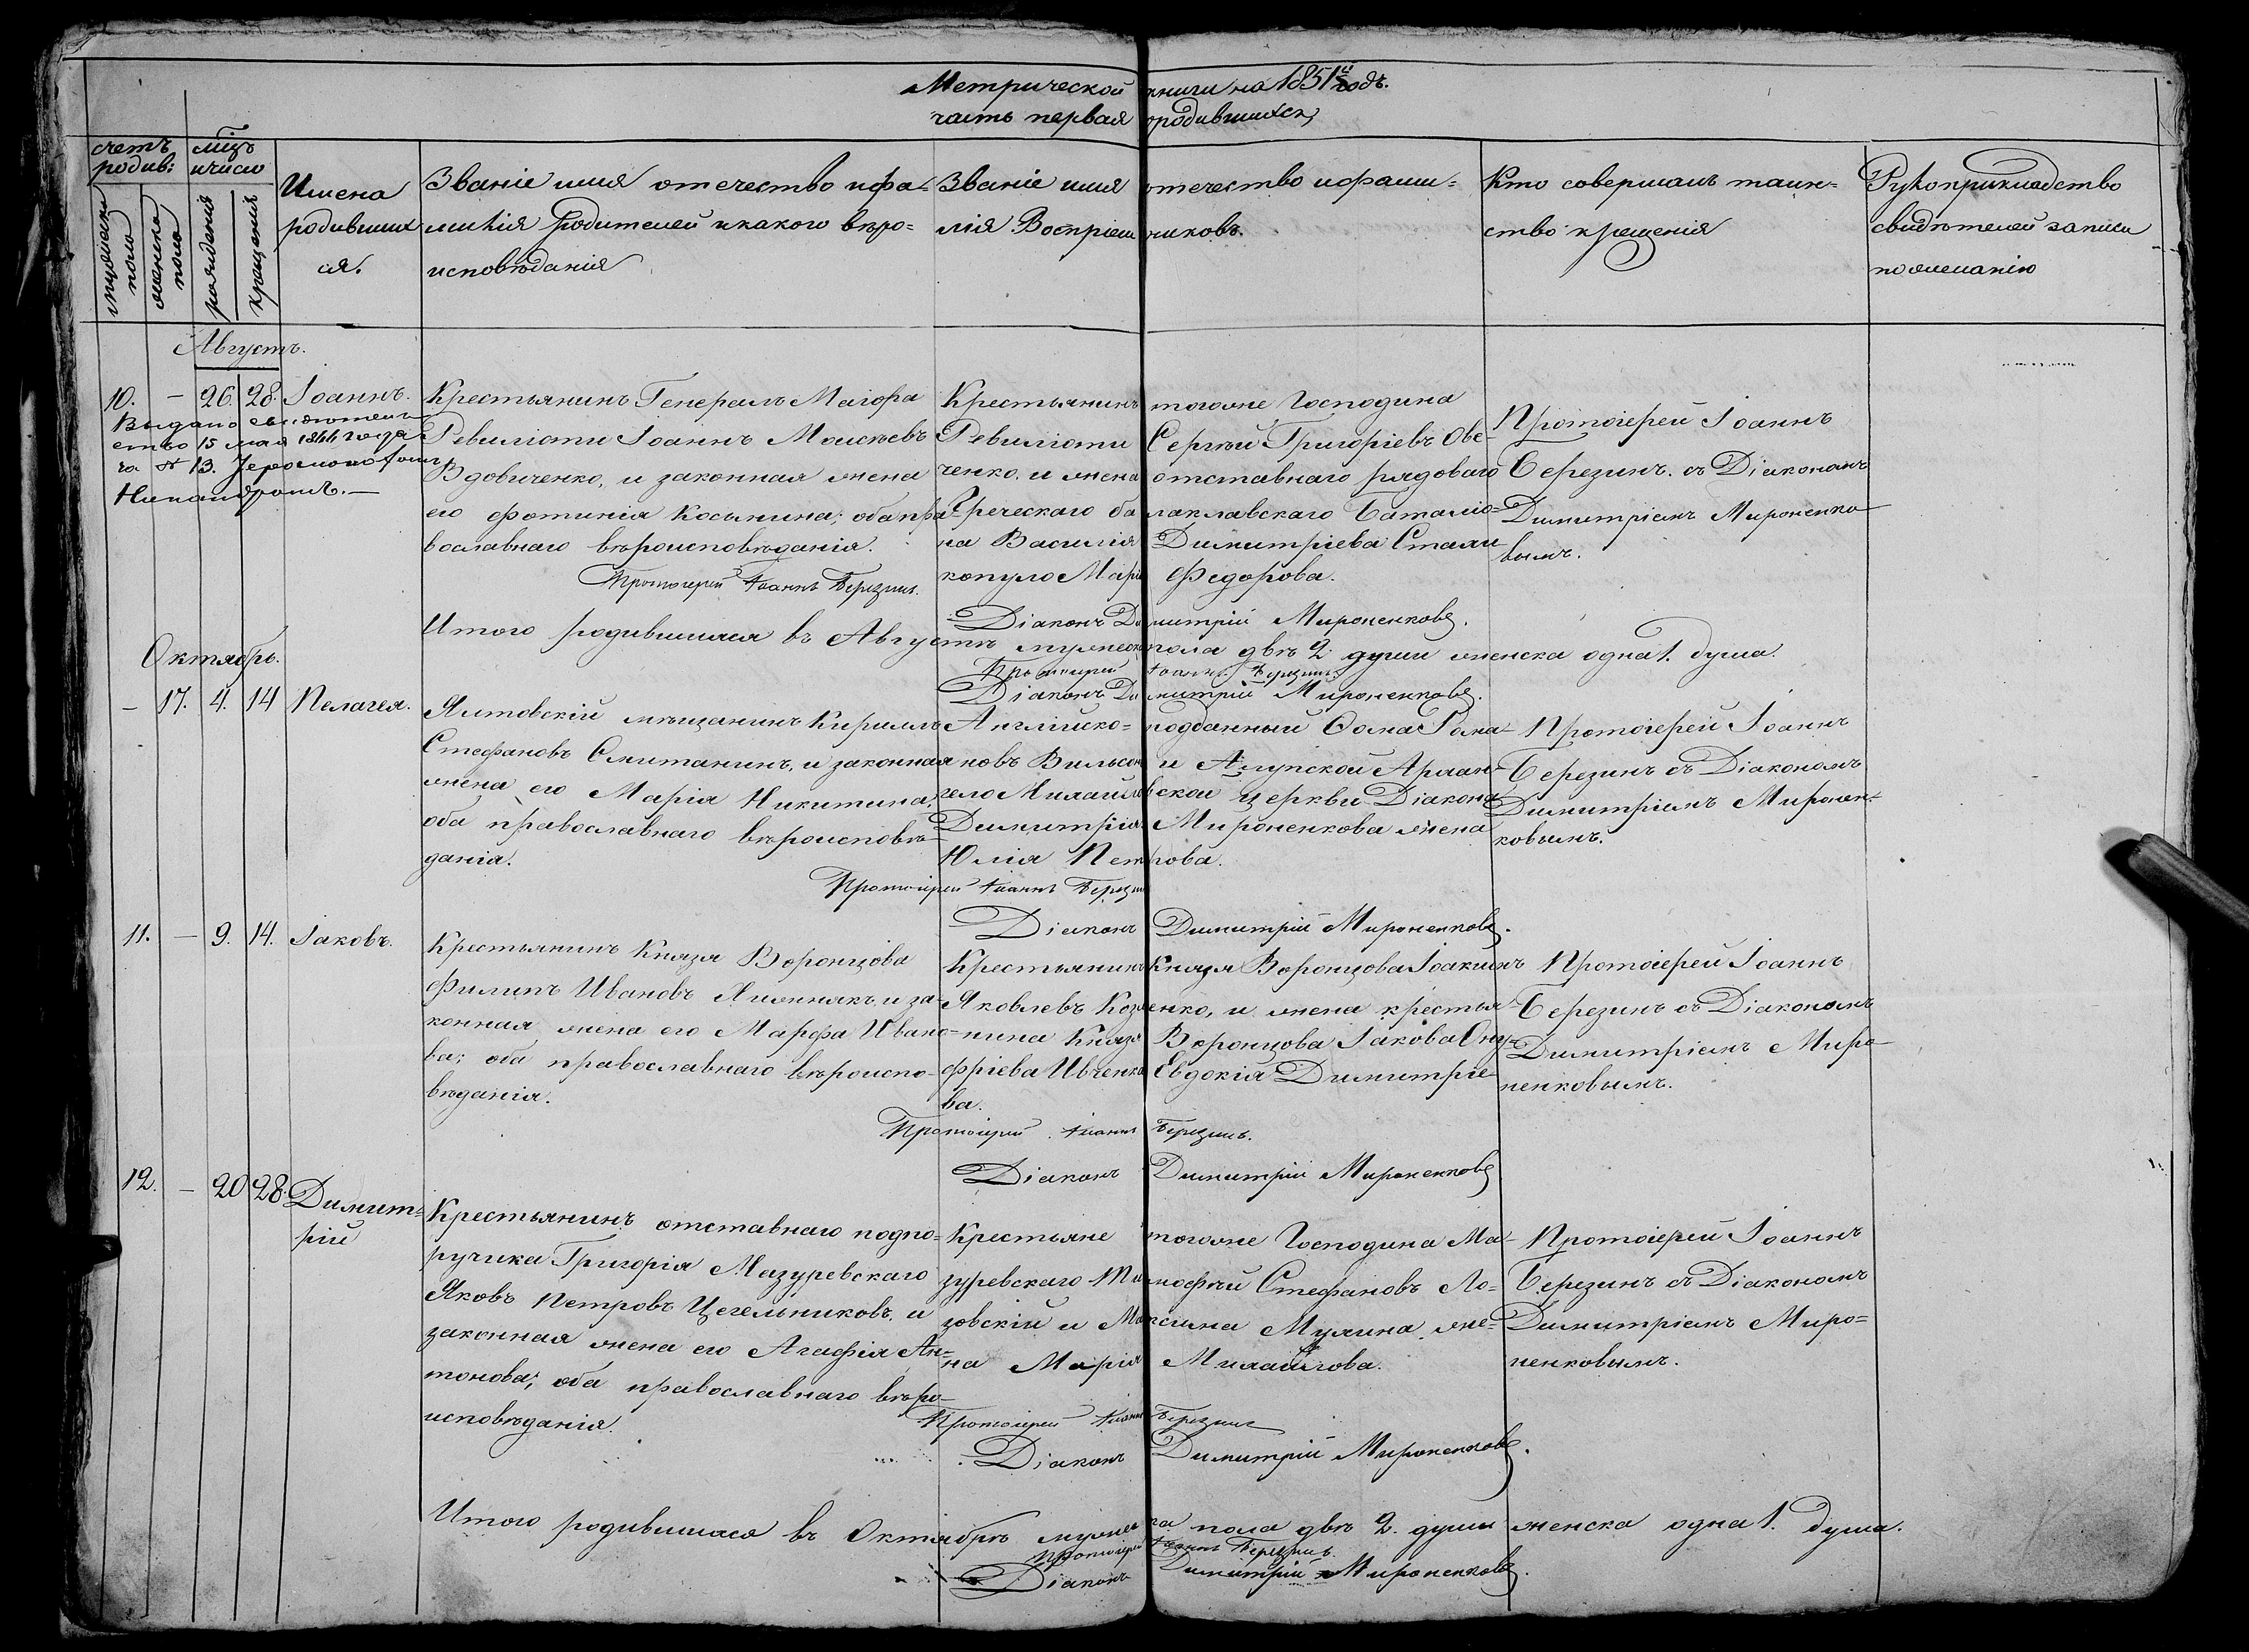 Метрической книги на 1851й годъ.
часть первая о родившихся
счетъ родив:
мужеска пола
женска пола
мцъ и число
рожденія
крещенія
Имена
родивших
ся.
Званіе имя отечество и фа-
милія родителей и какого вѣро=
исповѣданія
Званіе имя отечество и фами=
лія Воспріемниковъ.
Кто совершалъ таин=
ство крещенія
Рукоприкладство
свидѣтелей записи
по желанію
Августъ.
10. — 26. 28. Іоаннъ.
Выдано свидѣтель
ство 15 мая
за № 13. Іеромонахом
Никандромъ. —
Крестьянинъ Генералъ Маіора
Ревиліоти Іоаннъ Моисѣевъ
Вдовиченко, и законная жена
его Фотинія Косьмина; оба пра-
вославнаго вѣроисповѣданія.
Протоіерей Іоаннъ Березинъ.
Крестьянинъ тогоже Господина
Ревиліоти Сергѣй Григоріевъ Ове-
ченко. и жена отставнаго рядоваго
Греческаго балаклавскаго баталіо-
на Василія Димитріева Стали
копуло Марія Федорова.
Діаконъ Димитрій Мироненковъ.
Протоіерей Іоаннъ
Березинъ. съ Діакономъ
Димитріемъ Мироненко
вымъ.
Итого родившихся въ Августѣ мужеска пола двѣ 2. души женска одна 1. душа.
Протоіерей Іоаннъ Березинъ.
Діаконъ Димитрій Мироненковъ.
Октябрь.
— 17. 4. 14 Пелагея.
Ялтовскій мѣщанинъ Кирилъ
Стефановъ Смитанинъ, и законная
жена его Марія Никитина,
оба православнаго вѣроисповѣ-
данія.
Протоіерей Іоаннъ Березин
Англійско= подданный Ѳома Рома-
новъ Вильсонъ и Алупской Архан-
гело Михайловской церкви Діакона
Димитрія Мироненкова жена
Юлія Петрова.
Діаконъ Димитрій Мироненковъ.
Протоіерей Іоаннъ
Березинъ съ Діакономъ
Димитріемъ Миронен-
ковымъ.
11. — 9. 14. Іаковъ.
Крестьянинъ Князя Воронцова
Филипъ Ивановъ Хижнякъ, и за-
конная жена его Марфа Ивано-
ва; оба православнаго вѣроиспо-
вѣданія.
Протоіерей Іоаннъ Березинъ.
Крестьянинъ Князя Воронцова Іоакимъ
Яковлевъ Козленко, и жена крестья-
нина Князя Воронцова Іакова Ону-
фріева Ивченко Евдокія Димитріе-
ва.
Діаконъ Димитрій Мироненковъ
Протоіерей Іоаннъ
Березинъ съ Діакономъ
Димитріемъ Миро-
ненковымъ.
12. — 20 28. Димит=
рій
Крестьянинъ отставнаго подпо=
ручика Григорія Мазуревскаго
Яковъ Петровъ Цегельниковъ, и
законная жена его Агафія Ан=
тонова; оба православнаго вѣро-
исповѣданія.
Протоіерей Іоаннъ Березинъ
Крестьяне тогоже Господина Ма-
зуревскаго Тимофѣй Стефановъ Ло-
зовскій и Максима Мужина же=
на Марія Михайлова.
Діаконъ Димитрій Мироненковъ.
Протоіерей Іоаннъ
Березинъ съ Діакономъ
Димитріемъ Миро=
ненковымъ.
Итого родившихся въ Октябрѣ мужеска пола двѣ 2. души женска одна 1. душа.
Протоіерей Іоаннъ Березинъ.
Діаконъ Димитрій Мироненковъ.